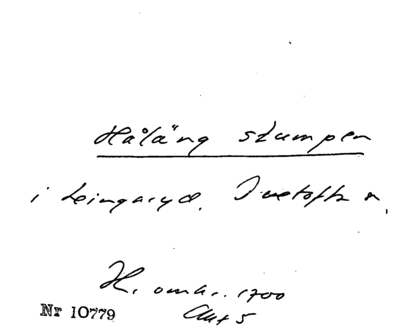 Hålång stumpen
i Leingaryd. Tvetofta s.
H. omkr. 1700
Nr 10779